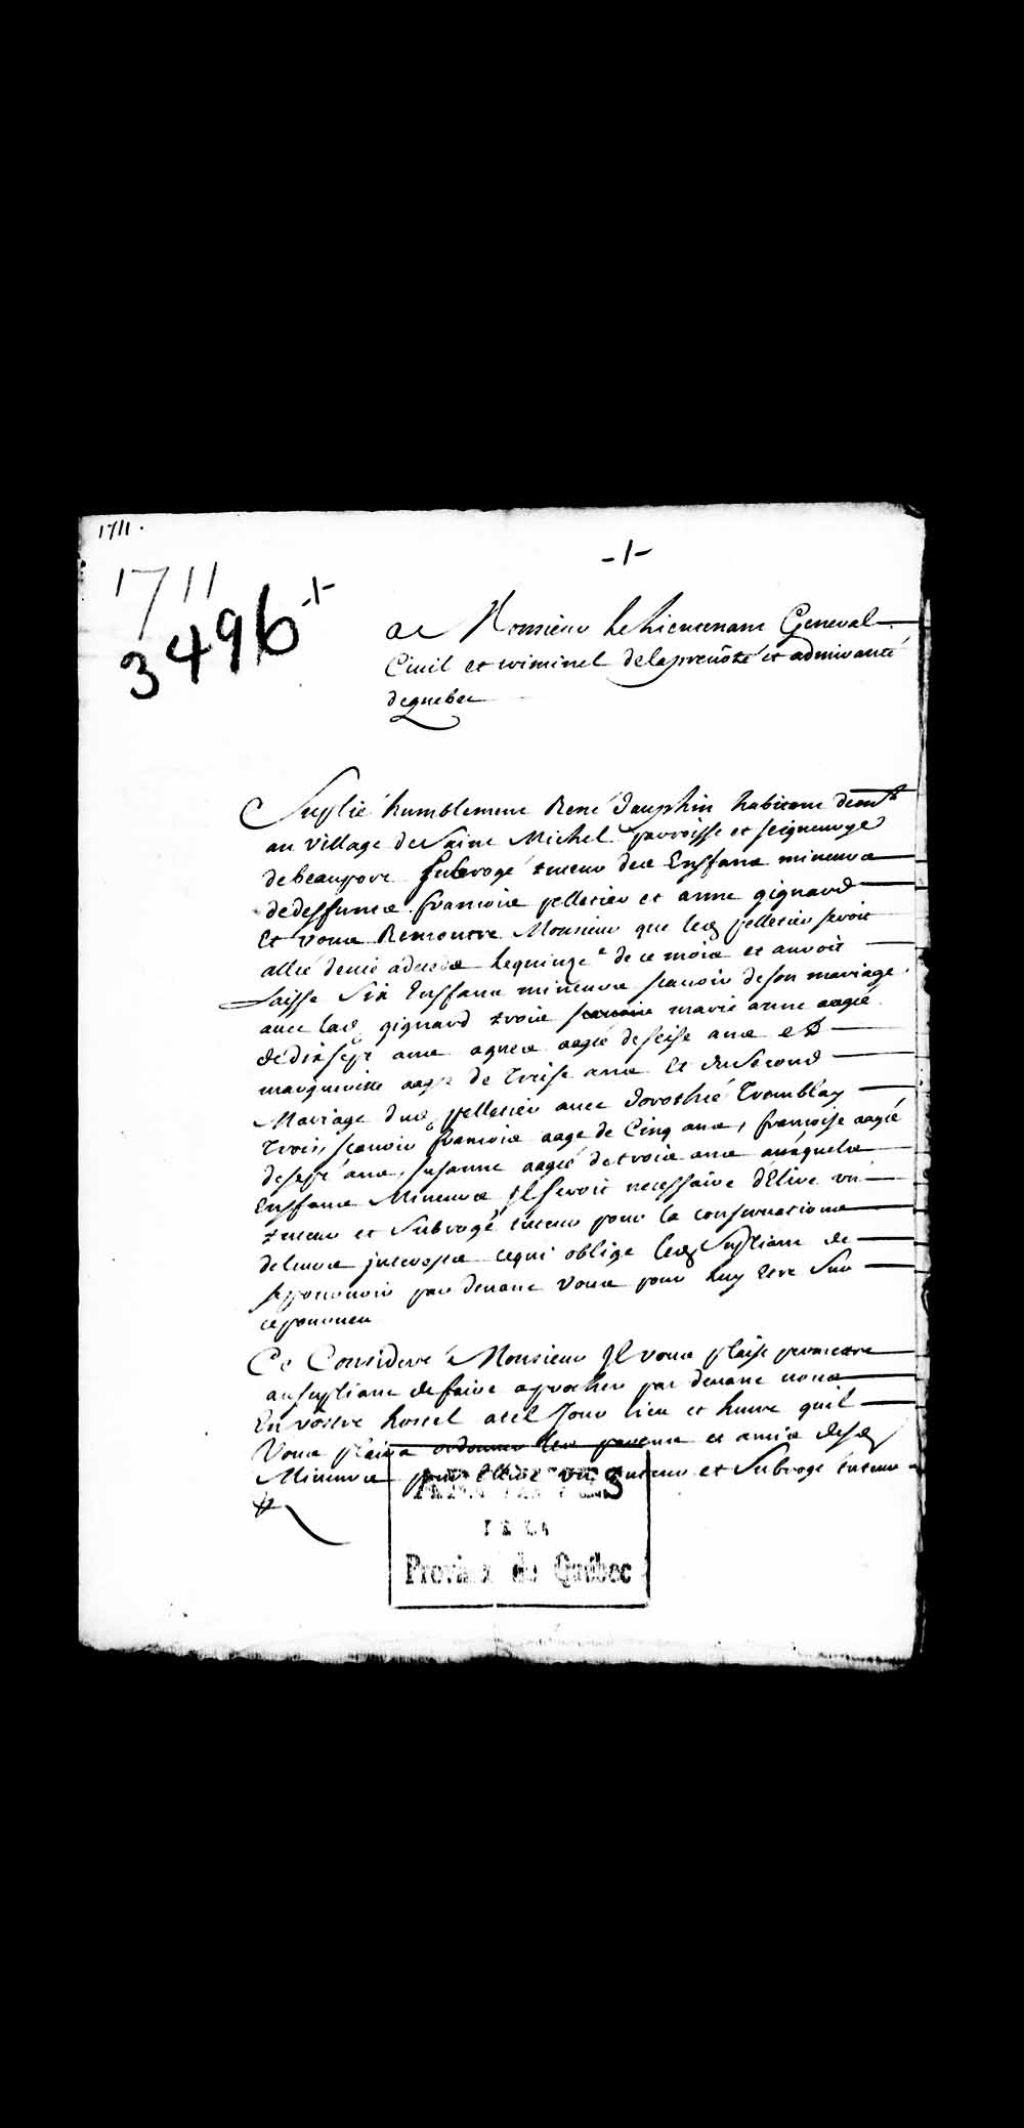 1711.
-/-
1711
3496 -/-
a Monsieur Le Lieutenant General
Civil et criminel de la prevôté et admirauté
de quebec
Suplie humblement René Dauphin habitant demt
au village de Saint Michel parroisse et seigneurye
de beauport Subrogé tuteur des Enffans mineurs
de deffuncts francois pelletier et anne gignard
Et vous Remontre Monsieur que led pelletier seroit
le quinze e de ce mois et auroit
Laisse Six Enffans mineurs scavoir de son mariage
avec lad gignard trois marie anne aagée
de dix sept ans agnes aagée de seise ans et
margueritte aagée de treise ans Et du Second
Mariage dud pelletier avec dorothé Tremblay
trois scavoir francois aage de Cinq ans, francoise aagée
de sept ans, susanne aagée de trois ans ausquels
Enffans Mineurs Il seroit necessaire d'Elire un
tuteur et Subrogé tuteur pour la conservations
de leurs interests ce qui oblige led Supliant de
se pourvoir par devant Vous pour luy Estre Sur
ce pourveu
Ce Consideré Monsieur Il vous plaise permettre
au supliant de faire aprocher par devant vous
En vostre hostel a tel Jour lieu et heure quil
Vous plaira ordonner les parens et amis desd
Mineurs pour Elire un tuteur et Subrogé tuteur
DE LA
Province de Québec